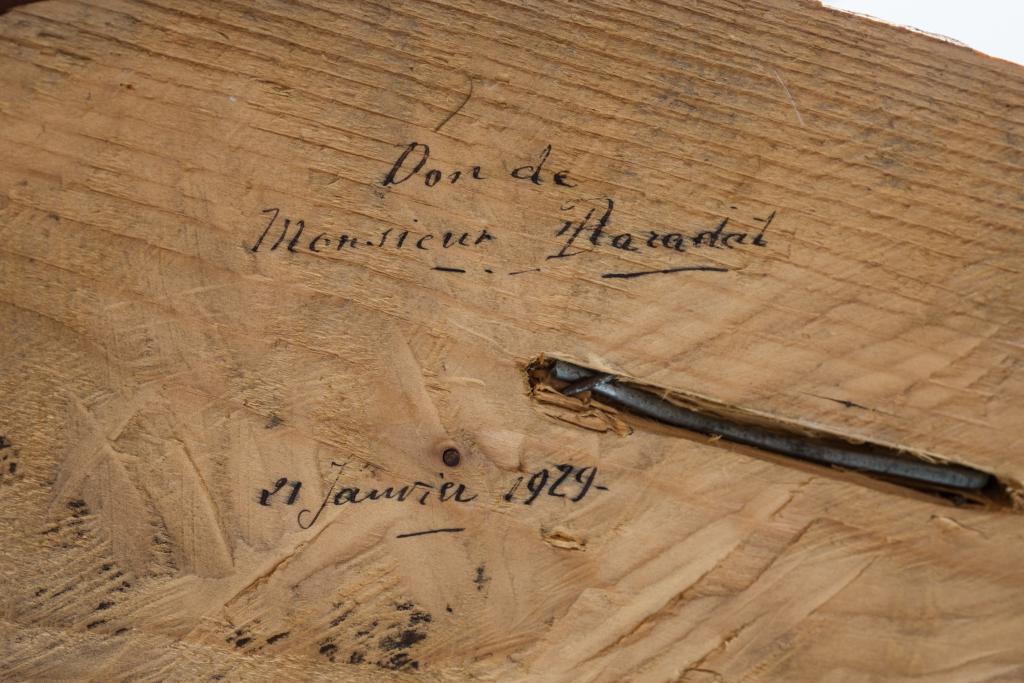 Don de
Monsieur
21 Janvier 1929-